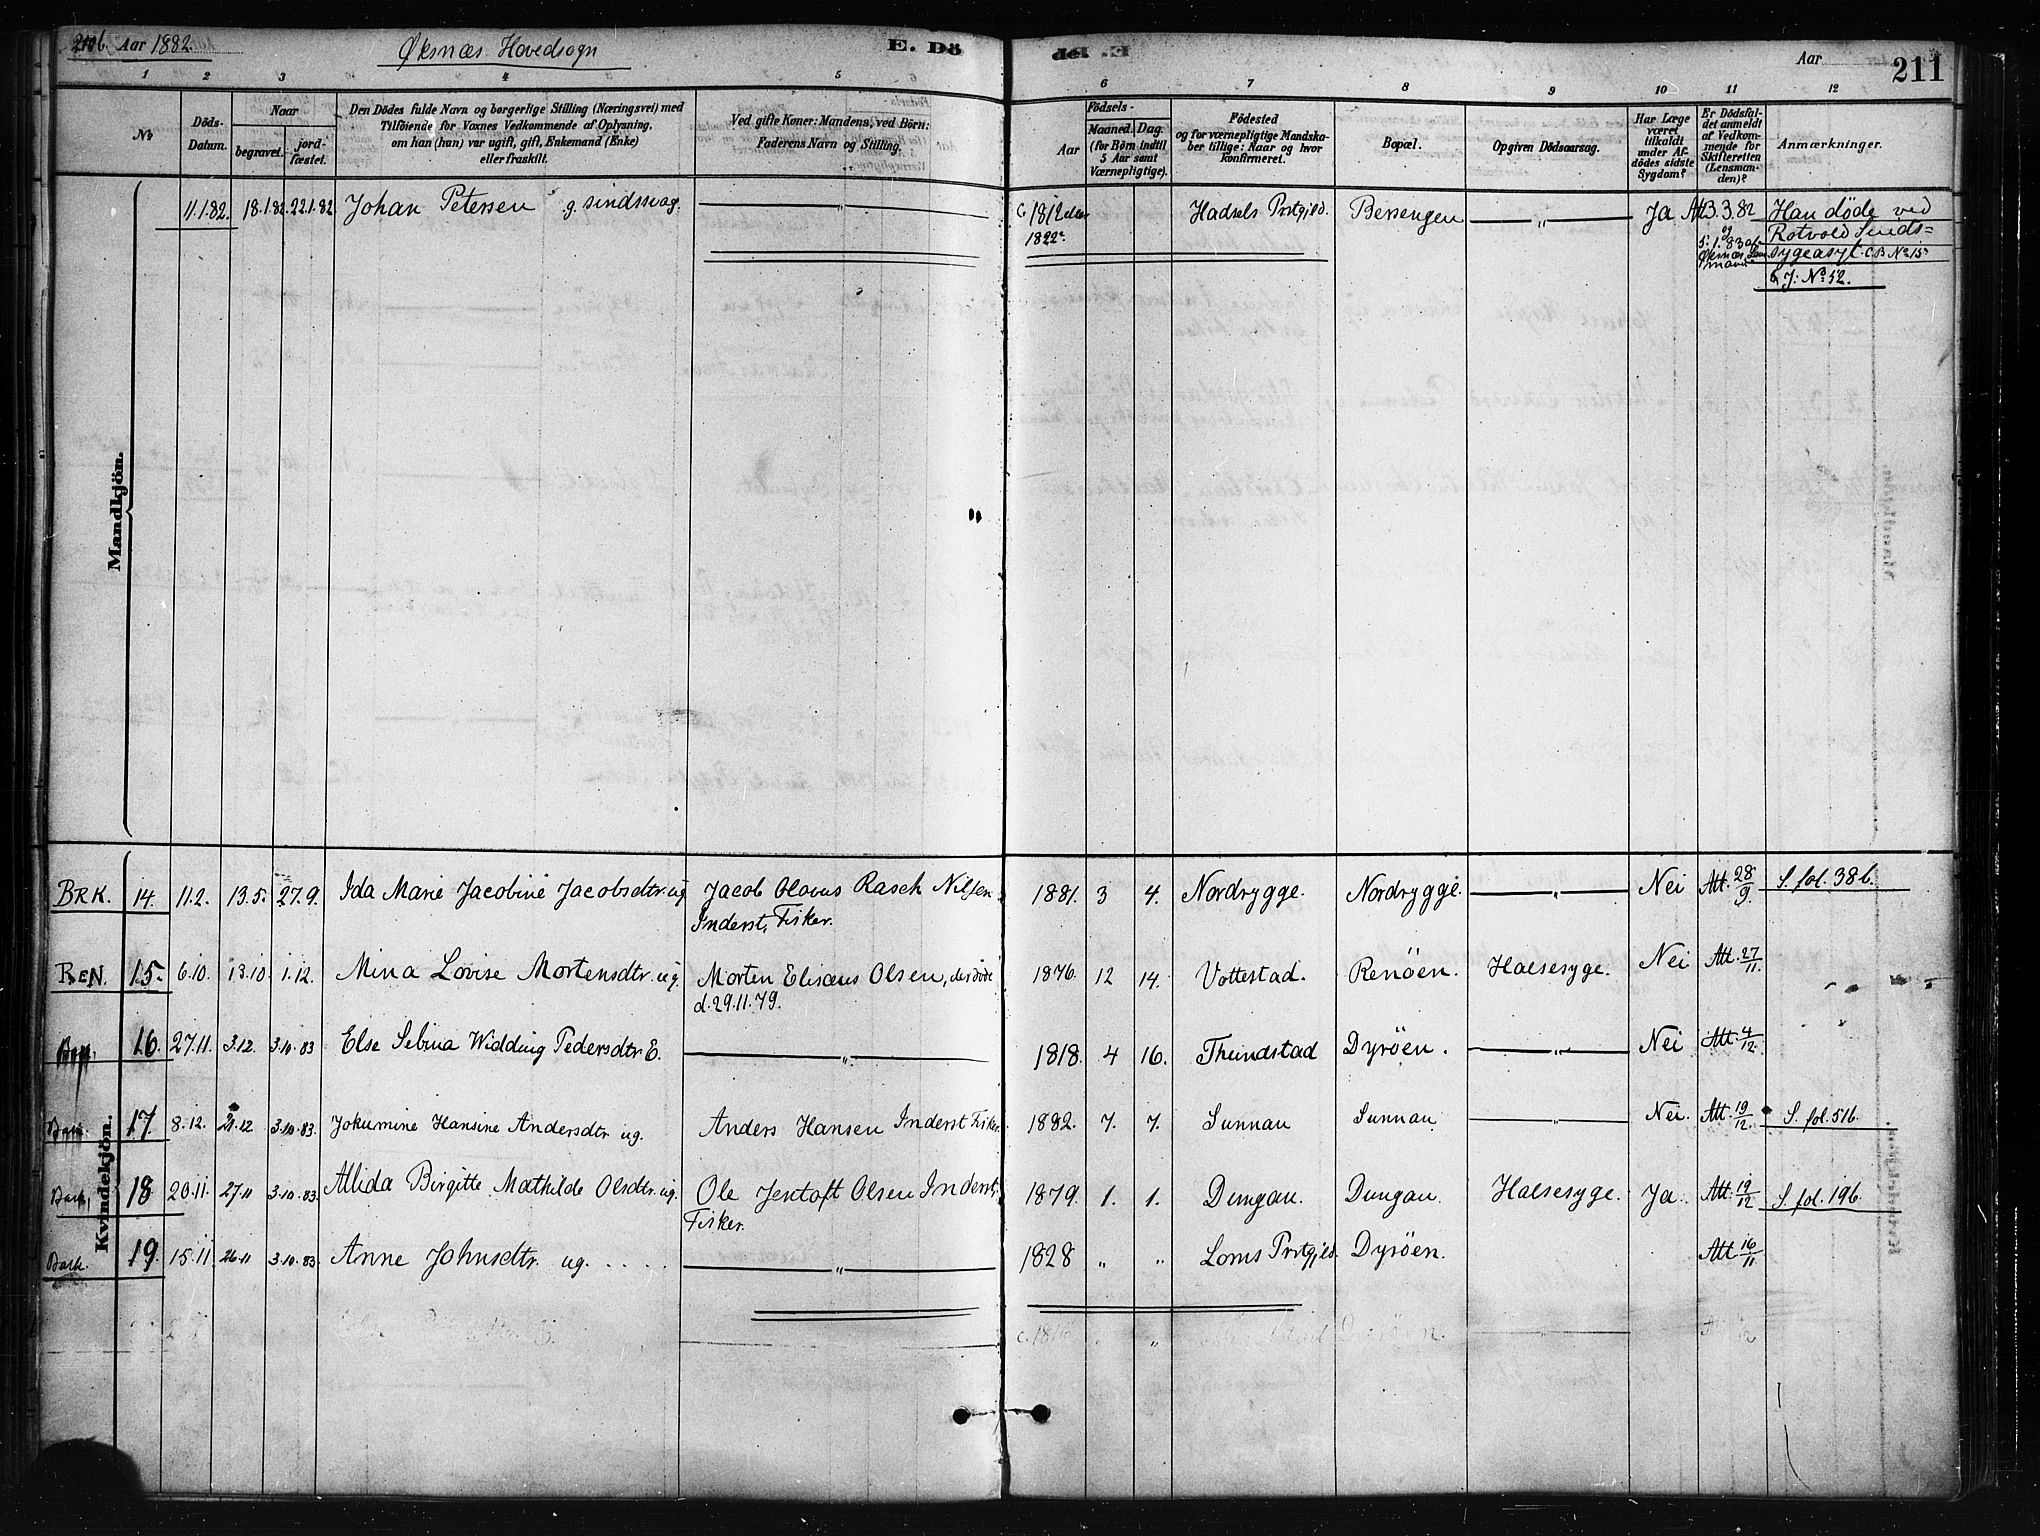 210b. Aar 1882. Øksnæs Hovedsogn E. Dö
de. E. Aar 211
1 2 3 4 5 6 7 8 9 10 11 12
No
Döds-Datum.
Naar
begravet. jord-fæstet.
Den Dödes fulde Navn og borgerlige Stilling (Næringsvei) med
Tilföiende for Voxnes Vedkommende af Oplysning,
om han (hun) var ugift, gift, Enkemand (Enke)
eller fraskilt.
Ved gifte Koner: Mandens, ved Börn:
Faderens Navn og Stilling.
Födsels-
Aar Maaned. Dag.
(for Börn indtil
5 Aar samt
Værnepligtige).
Födested
og for værnepligtige Mandska-
ber tillige: Naar og hvor
konfirmeret.
Bopæl.
Opgiven Dödsaarsag.
Har Læge
været
tilkaldt
under Af-
dödes sidste
Sygdom?
Er Dödsfal-
det anmeldt
af Vedkom-
mende for
Skifteretten
(Lensman-
den)?
Anmærkninger.
Mandkjön.
11.1.82. 18.1.82. 22.1.82 Johan Petersen g. sindssvag. — " — 1812 eller Hadsels Prstgjld. Bersengen — " — Ja Att. 3.3.82 Han döde ved
1822. og Rotvold Sinds=
5.1.83 af sygeasyl. C.B No 15
Øksnæs
& J: No 52.
Kvindekjön.
BRK. 14. 11.2. 13.5. 27.9. Ida Marie Jacobine Jacobsdtr. ug. Jacob Olavus Rasch Nilsen 1881. 3 4. Nordrygge. Nordrygge. — " — Nei Att. 28/9. S. fol. 38b.
Inderst, Fisker.
REN. 15. 6.10. 13.10. 1.12. Mina Lovise Mortensdtr. ug. Morten Elisæus Olsen, der döde 1876. 12 14. Vottestad. Renöen. Halsesyge. Nei Att. 27/11.
d. 29.11.79.
16. 27.11. 3.12. 3.10.83 Else Sebina Widding Pedersdtr. E. — " — 1818. 4 16. Thindstad Dyröen. — " — Nei Att. 4/12.
Bark. 17. 8.12. 21.12 3.10.83. Jokumine Hansine Andersdtr. ug. Anders Hansen Inderst Fisker. 1882. 7. 7. Sunnan Sunnan — " — Nei. Att. 19/12 S. fol. 51b.
Bark. 18 20.11. 27.11 3.10.83. Allida Birgitte Mathilde Olsdtr. ug. Ole Jentoft Olsen Inderst, 1879. 1. 1. Dungan. Dungan. Halsesyge. Ja. Att. 19/12 S. fol. 19b.
Fisker.
Bark. 19. 15.11. 26.11 3.10.83. Anne Johnsdtr. ug. . . . . — " — 1828 " " Loms Prstgjld. Dyröen. Att. 16/11
c. 1816 " " Dyröen.